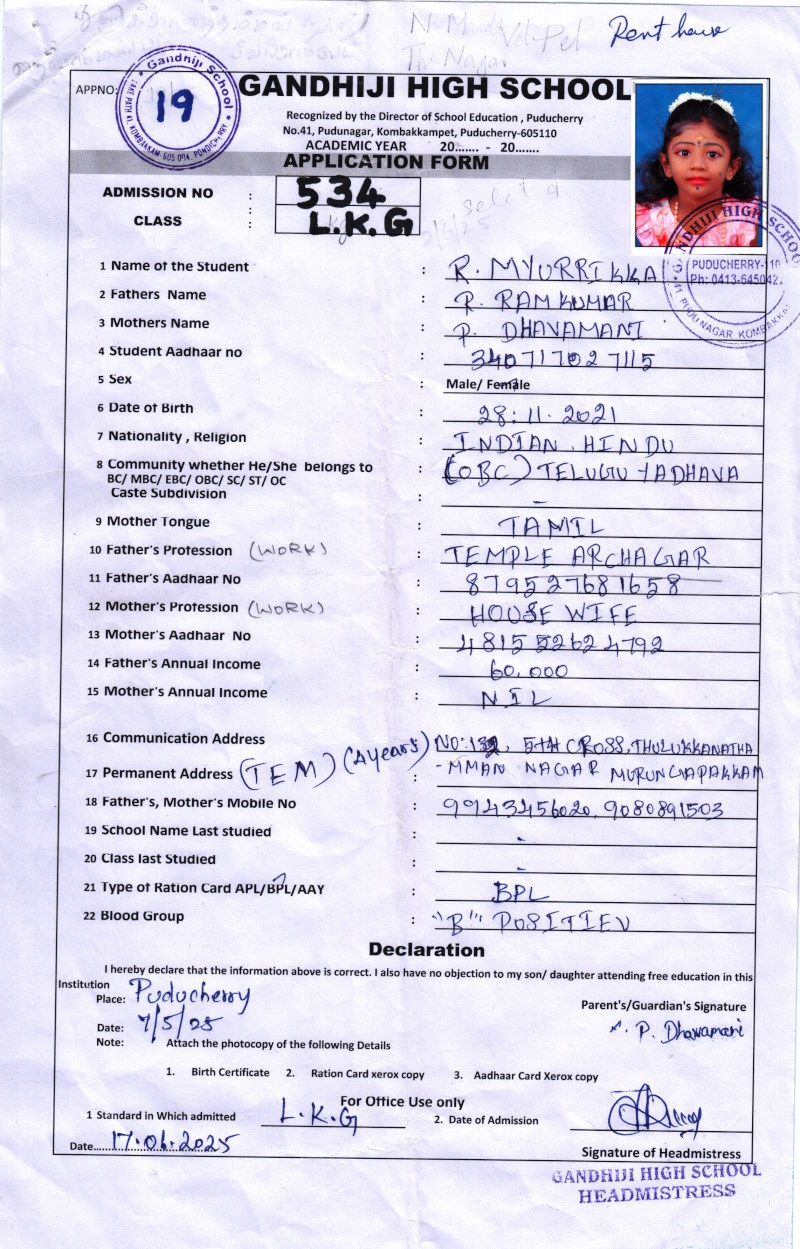 Rent house
APPNO:
Gandhiji School
19
GANDHIJI HIGH SCHOOL
Recognized by the Director of School Education , Puducherry
No.41, Pudunagar, Kombakkampet, Puducherry-605110
ACADEMIC YEAR 20....... - 20.......
APPLICATION FORM
ADMISSION NO : 534
CLASS : L.K.G
GANDHIJI HIGH SCHOOL
PUDUCHERRY-110
Ph: 0413-645042
41 PUDU NAGAR KOMBAKKA
1 Name of the Student : R. MYURRIKKA
2 Fathers Name : P. RAMKUMAR
3 Mothers Name : P. DHAVAMANI
4 Student Aadhaar no : 340717027115
5 Sex : Male/ Female
6 Date of Birth : 28.11.2021
7 Nationality , Religion : INDIAN, HINDU
8 Community whether He/She belongs to : (OBC) TELUGU YADHAVA
BC/ MBC/ EBC/ OBC/ SC/ ST/ OC
Caste Subdivision : -
9 Mother Tongue : TAMIL
10 Father's Profession (WORK) : TEMPLE ARCHAGAR
11 Father's Aadhaar No : 879527681658
12 Mother's Profession (WORK) : HOUSE WIFE
13 Mother's Aadhaar No : 4815 5262 4792
14 Father's Annual Income : 60,000
15 Mother's Annual Income : NIL
16 Communication Address : NO: 5TH CROSS, THULUKKANATHA
17 Permanent Address (TEM) (4years) : -MMAN NAGAR MURUNGAPAKKAM
18 Father's, Mother's Mobile No : 9943456020, 9080891503
19 School Name Last studied : -
20 Class last Studied : -
21 Type of Ration Card APL/BPL/AAY : BPL
22 Blood Group : "B" POSITIEV
Declaration
I hereby declare that the information above is correct. I also have no objection to my son/ daughter attending free education in this
Institution
Place: Puducherry
Parent's/Guardian's Signature
Date: 7/5/25
P. Dhavamani
Note: Attach the photocopy of the following Details
1. Birth Certificate 2. Ration Card xerox copy 3. Aadhaar Card Xerox copy
For Office Use only
1 Standard in Which admitted L.K.G 2. Date of Admission
Date......17.06.2025
Signature of Headmistress
GANDHIJI HIGH SCHOOL
HEADMISTRESS